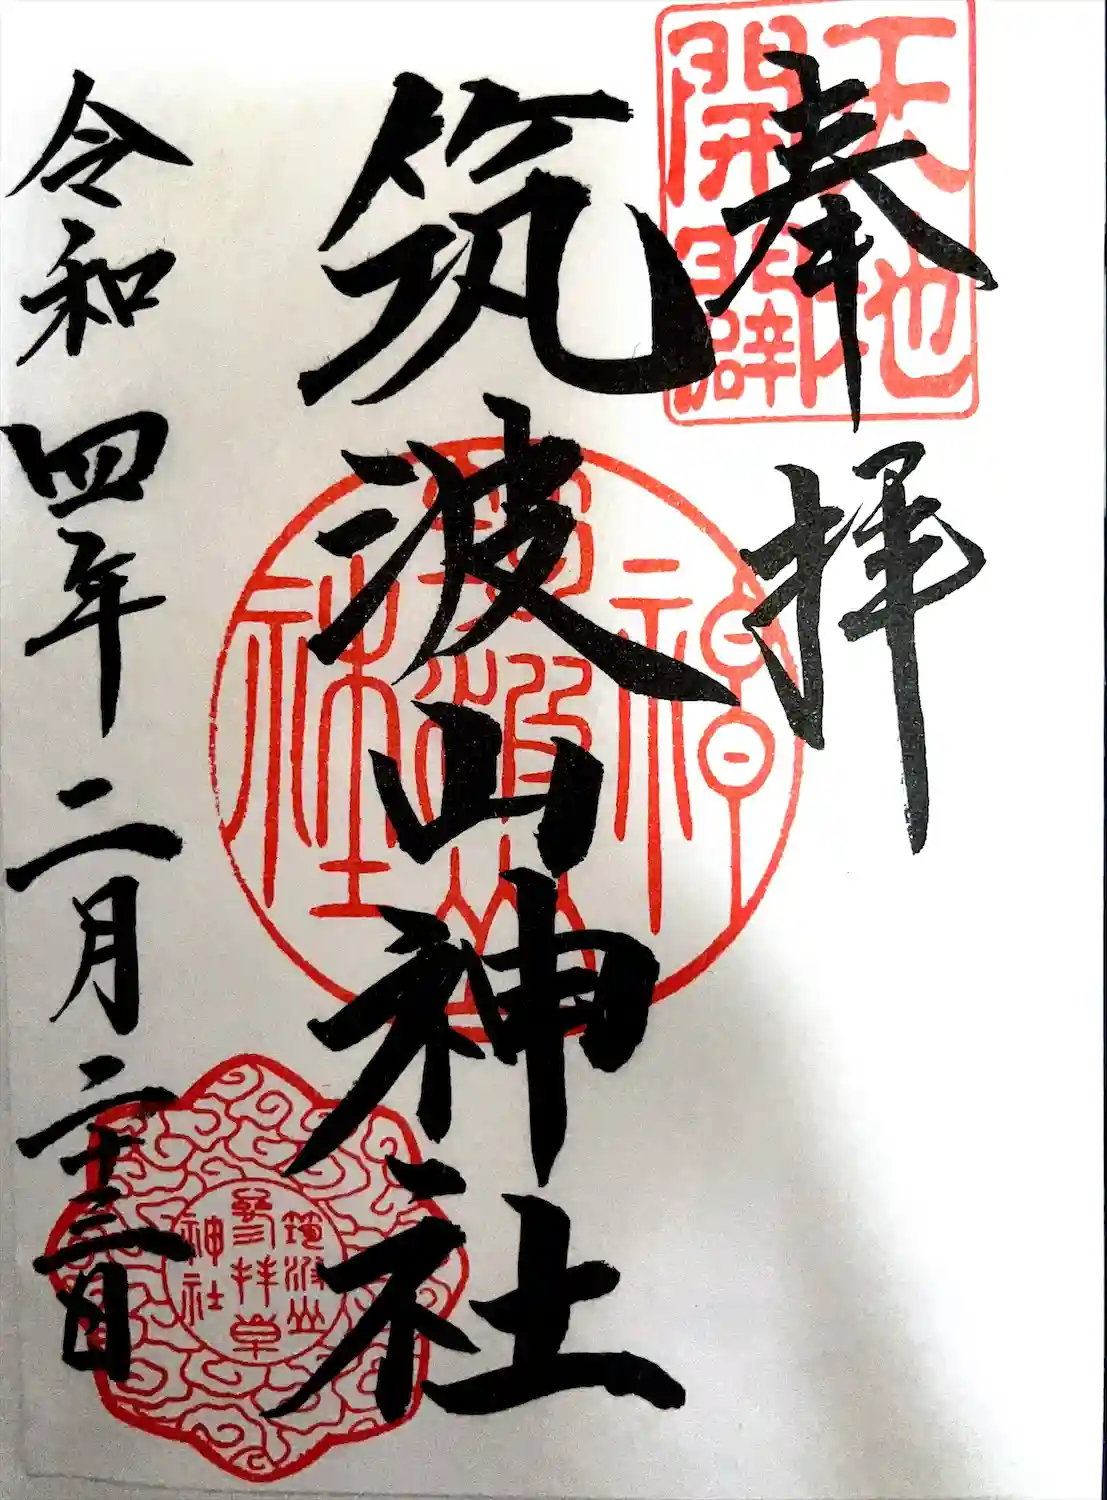 奉拝
天地
開闢
筑波山神社
筑波山
神社
筑波山
参拝章
神社
令和四年二月二十三日